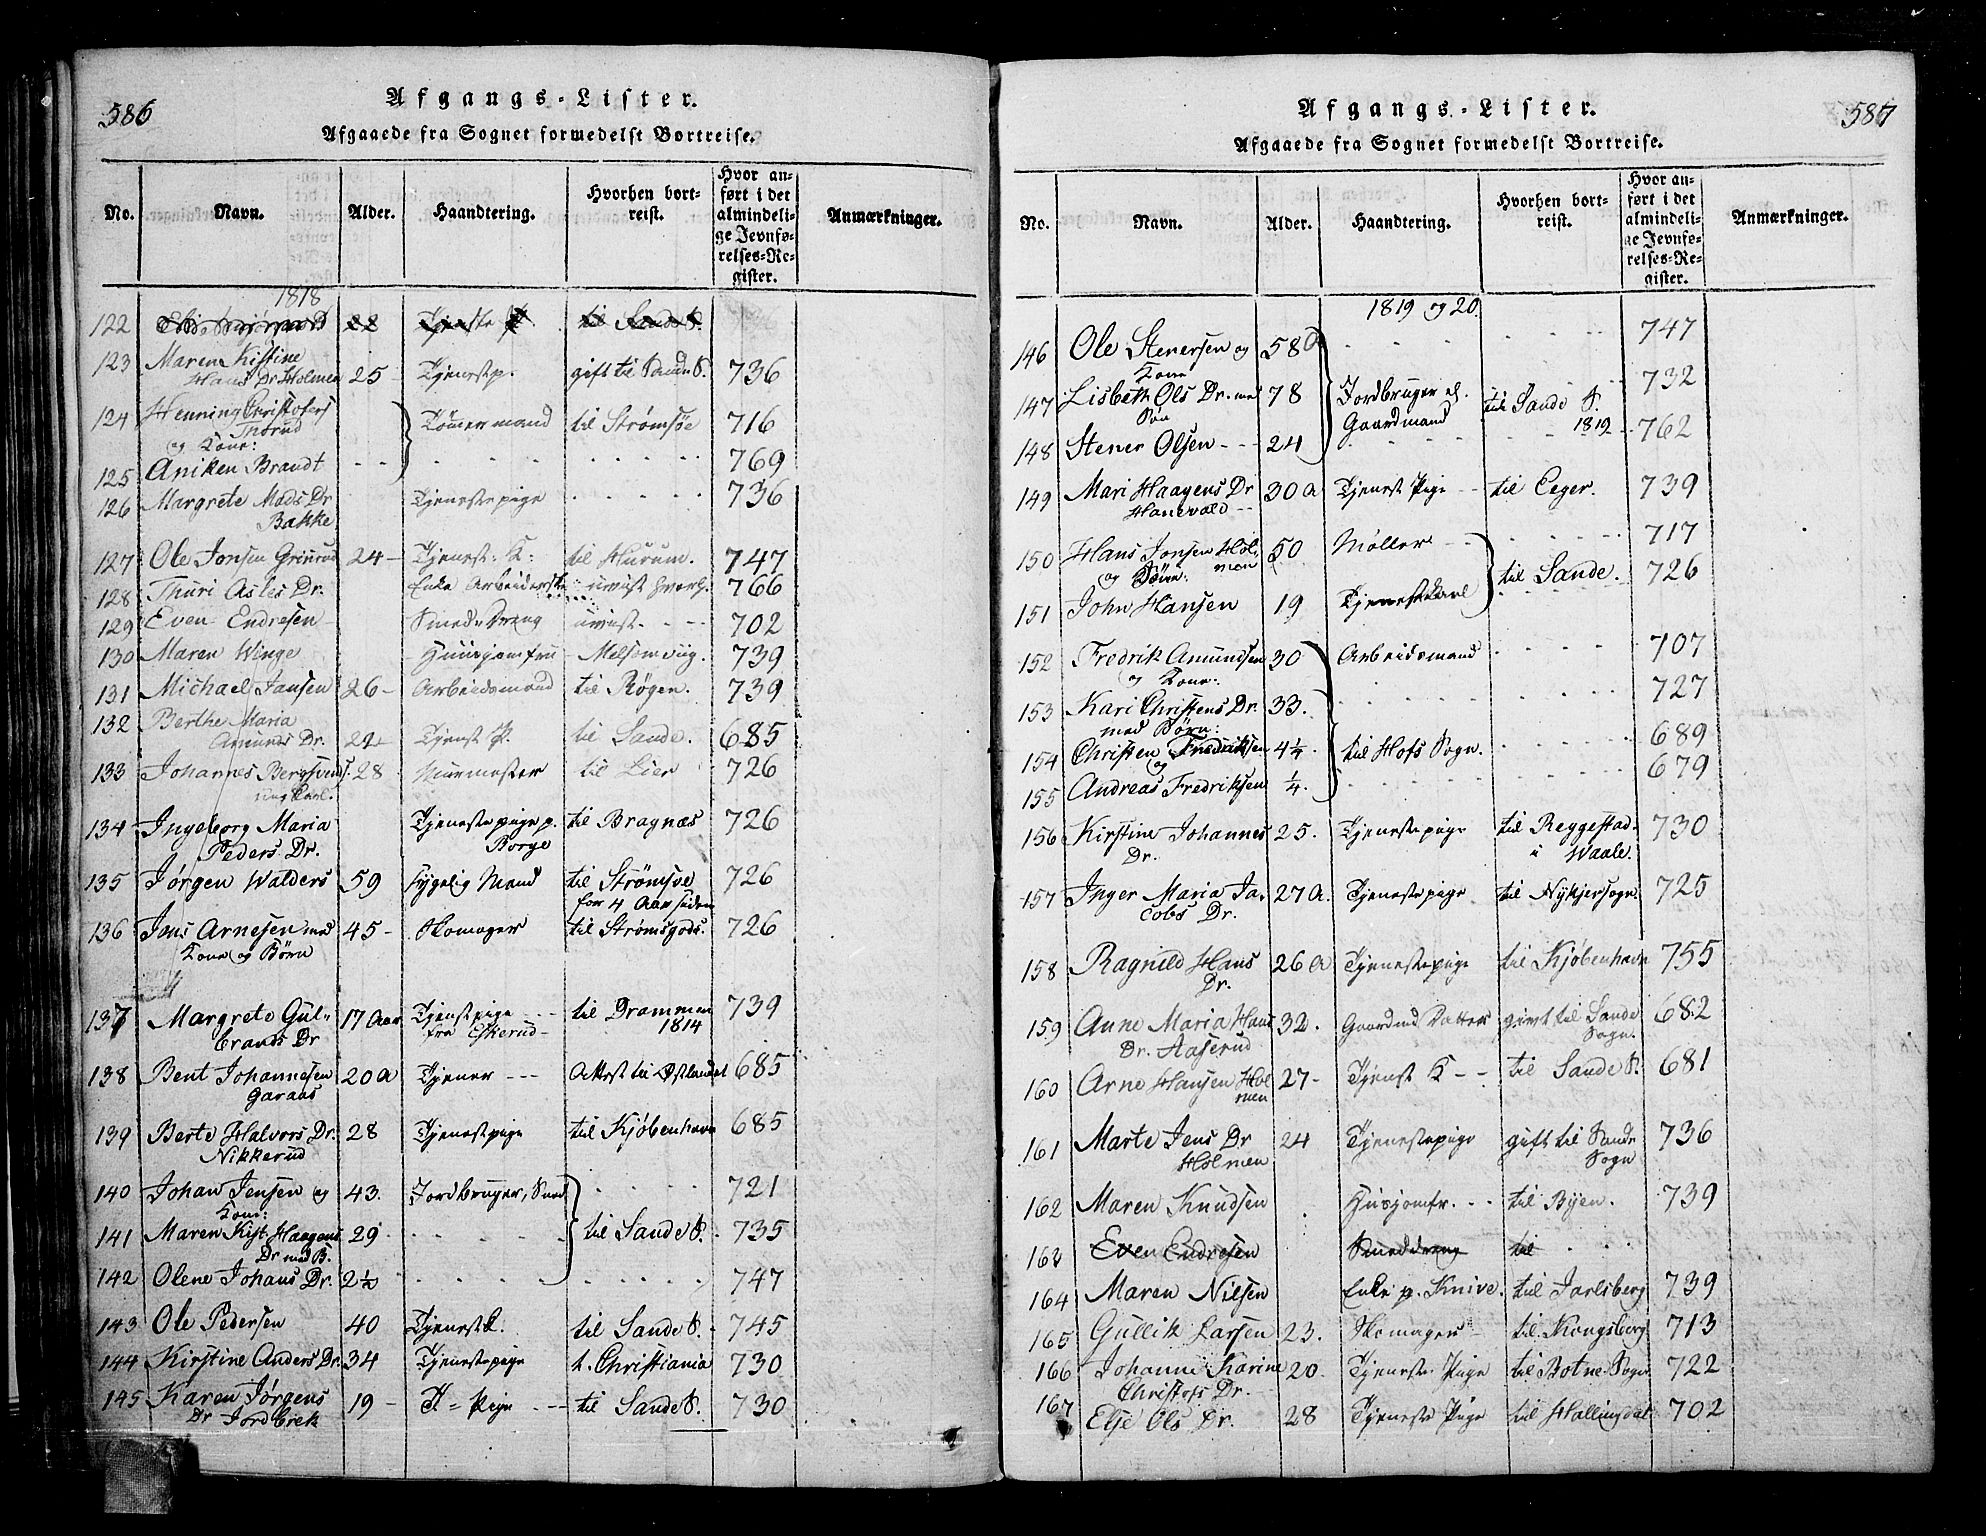 586
Afgangs-Lister.
Afgaaede fra Sognet formedelst Bortreise.
No. Navn. Alder. Haandtering. Hvorhen bortreist. Hvor anført i det almindelige Jevnførelses-Register. Anmærkninger.
1818
122 22 Tjeneste til Sande S.
123 Maren Kistine
Hans Dr Holmen 25 - Tjenestp. gift til Sande S. 736
124 Henning Christofers
Thorud Tömermand til Strömsöe 716
og Kone:
125 Aniken Brandt 769
126 Margrete Mads Dr Tjenestepige 736
Bakke
127 Ole Jonsen Grinrud 24 - Tjenest. K: til Hurum. 747
128 Thuri Asles Dr. Enke Arbeiderske uvist hvorh. 766
129 Even Endresen Smed-Dreng uvist 702
130 Maren Winge Huusjomfru - Melsomvig. 739
131 Michael Jansen 26 - Arbeidsmand til Rögen. 739
132 Berthe Maria
Amunds Dr. Tjenest P. til Sande. 685
133 Johannes Bergsvends 28 Murmester til Lier 726
ung Karl.
134 Ingeborg Maria Tjenestepige p. til Bragnæs 726
Peders Dr. Borge
135 Jörgen Walders 59 sygelig Mand til Strömsøe 726
for 4 Aar siden
136 Jens Arnesen med 45 - Skomager til Strömsgods. 726
Kone og Börn
137 Margrete Gul- 17 Aar Tjenestpige til Drammen 739
brands Dr fra Eskerud - 1814
138 Bent Johannesen 20 A Tjener --- Attest til Østlandet 685
Garaas
139 Berte Halvors Dr. 28 Tjenestpige til Kjöbenhavn 685
Nikkerud
140 Johan Jensen og 43. Jordbruger, Smed 721
Kone:
141 Maren Kist. Haagens 29 til Sande S. 735
Dr med B.
142 Olene Johans Dr. 2½ 747
143 Ole Pedersen 40 Tjenest K. til Sande S. 745
144 Kirstine Anders Dr. 34 Tjenestepige t. Christiania 730
145 Karen Jörgens 19 - T= Pige --- til Sande S. 730
Dr Jordbrek
587
Afgangs-Lister.
Afgaaede fra Sognet formedelst Bortreise.
No. Navn. Alder. Haandtering. Hvorhen bortreist. Hvor anført i det almindelige Jevnførelses-Register. Anmærkninger.
1819 og 20.
146 Ole Stenersen og 58 747
Kone
147 Lisbeth Ols Dr. med 78 Jordbruger el. til Sande S. 732
Sön Gaardmand 1819
148 Stener Olsen --- 24 762
149 Mari Haagens Dr 30 A Tjenest Pige -- til Eger. 739
Hanevold --
150 Hans Jonsen Hol- 50 Möller -- 717
og Sön: men
151 John Hansen 19 Tjenestekarl til Sande. 726
152 Fredrik Amundsen 30 Arbeidsmand 707
og Kone:
153 Kari Christens Dr. 33. 727
med Börn:
154 Christen Fredriksen 4¼ til Hofs Sogn. 689
og
155 Andreas Fredriksen ¼. 679
156 Kirstine Johannes 25. Tjenestepige til Reggestad 730
Dr. i Waale.
157 Inger Maria Ja- 27 A. Tjenestepige til Nykjersogn. 725
cobs Dr.
158 Ragnild Hans 26 A Tjenestepige til Kjöbenhavn 755
Dr.
159 Anne Maria Hans 32. Gaardmd Datter givt til Sande 682
Dr. Aaserud Sogn.
160 Arne Hansen Hol 27 - Tjenest K -- til Sande S. 681
men
161 Marte Jens Dr 24 Tjenestepige gift til Sande 736
Holmen Sogn
162 Maren Knudsen Husjomfr. -- til Byen. 739
163 Even Endresen Smeddreng til
164 Maren Nilsen Enke p. Knive. til Jarlsberg 739
165 Gullik Larsen 23. Skomager - til Kongsberg 713
166 Johanne Karine 20 Tjeneste Pige til Botne Sogn 722
Christofs Dr.
167 Elje Ols Dr. 28 Tjeneste Pige til Hallingdal 702